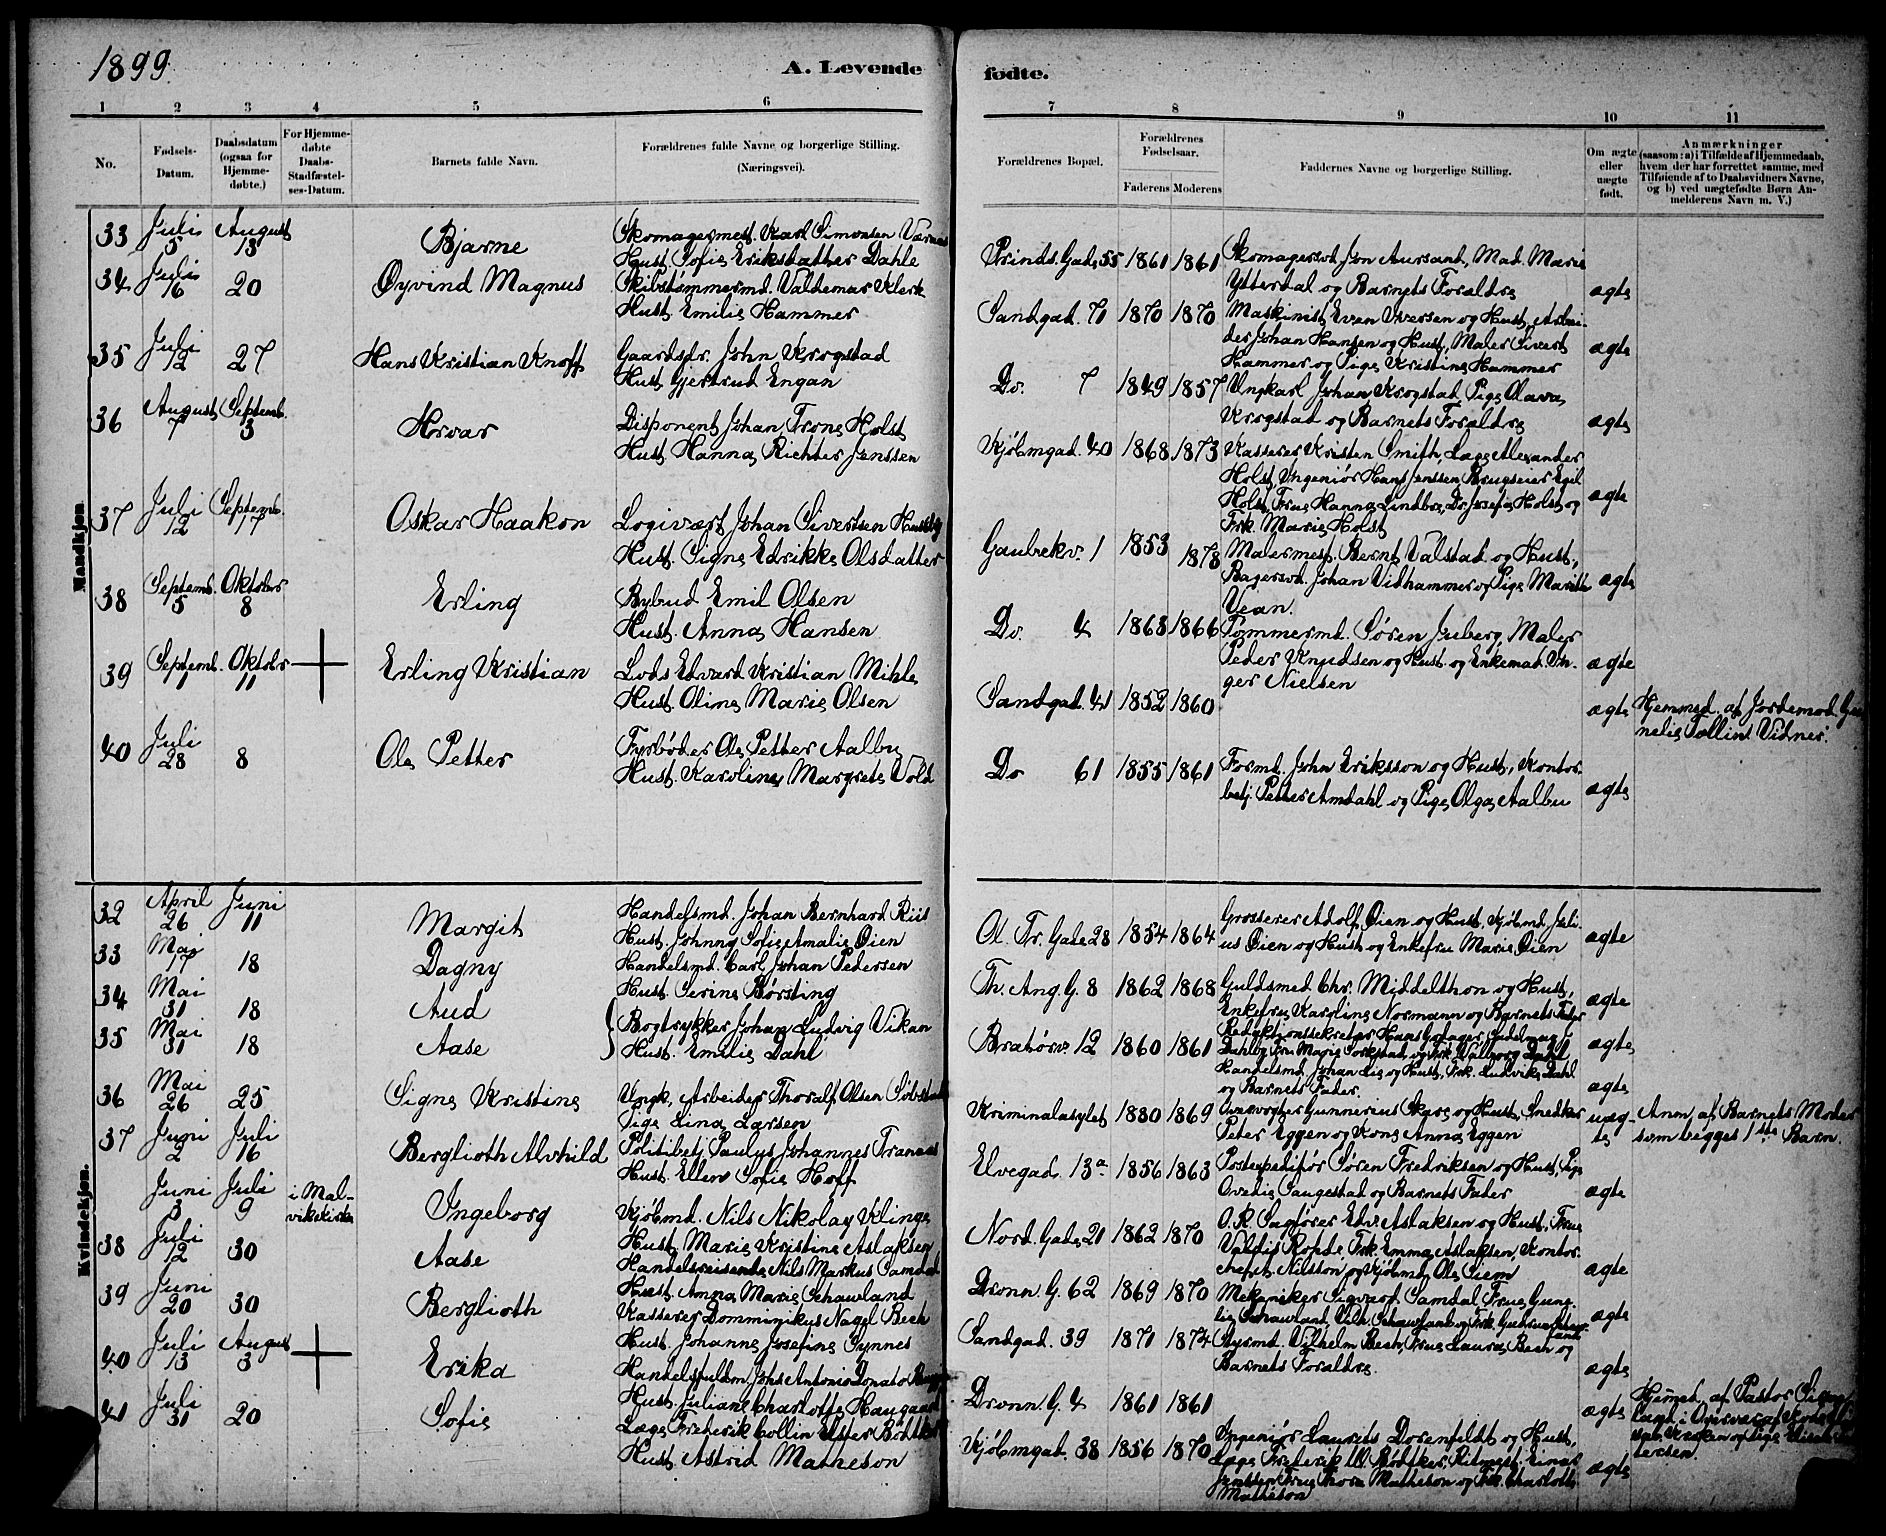 1899.
A. Levende fødte.
1 2 3 4 5 6 7 8 9 10 11
No.
Fødsels-
Datum.
Daabsdatum
(ogsaa for
Hjemme-
døbte.)
For Hjemme-
døbte
Daabs-
Stadfæstel-
ses-Datum.
Barnets fulde Navn.
Forældrenes fulde Navne og borgerlige Stilling.
(Næringsvei).
Forældrenes Bopæl.
Forældrenes
Fødselsaar.
Faderens Moderens
Faddernes Navne og borgerlige Stilling.
Om ægte
eller
uægte
født.
Anmærkninger
(saasom: a) i Tilfælde af Hjemmedaab,
hvem der har forrettet samme, med
Tilføiende af to Daabsvidners Navne,
og b) ved uægtefødte Børn An-
melderens Navn m. V.)
Mandkjøn
33 Juli 5 August 13 Bjarne
Skomagermest. Karl Simonsen Værnes
Hust. Sofie Eriksdatter Dahle
Prinds. Gade 55 1861 1861
Skomagersvd. Jon Aursand, Mad. Marie
Ytterdal og Barnets Forældre
ægte
34 Juli 16 20 Øyvind Magnus
Skibstømmermd. Valdemar Klerk
Hust. Emilie Hammer
Sandgad. 71 1870 1870
Maskinist Even Iversen og Hust, Arbei-
der Johan Hansen og Hust, Maler Sivert
Hammer og Pige Kristine Hammer
ægte
35 Juli 12 27 Hans Kristian Knoff
Gaardsdr. John Krogstad
Hust. Gjertrud Engan
Do. 7 1849 1857
Ungkarl Johan Krogstad, Pige Olava
Krogstad og Barnets Forældre
ægte
36 August 7 Septemb. 3 Hroar
Disponent Johan Trone Holst
Hust. Hanna Richter Jenssen
Kjøbmgad. 40 1868 1873
Kasserer Kristen Smith, Læge Alexander
Holst, Ingeniør Hans Jenssen, Brugseier Egil
Holst, Frue Hanna Lindboe, Do. Josefa Holst og
Frk. Marie Holst
ægte
37 Juli 12 Septemb. 17 Oskar Haakon
Logivært Johan Sivertsen Husby
Hust. Signe Edrikke Olsdatter
Gaubekv. 1 1853 1878
Malermest. Bernt Valstad og Hust,
Bagersvd. Johan Vidhammer og Pige
Vean.
ægte
38 Septemb. 5 Oktober 8 Erling
Bybud Emil Olsen
Hust. Anna Hansen
Do. 4 1863 1866
Tømmermd. Søren Juberg, Maler
Peder Knudsen og Hust. og Enkemad. In-
ger Nielsen
ægte
39 Septemb. 1 Oktober 11 Erling Kristian
Lods Edvard Kristian Mihle
Hust. Oline Marie Olsen
Sandgad. 41 1852 1860
ægte
Hjemmed. af Jordemod.
nelie Tollin. Vidner.
40 Juli 28 8 Ole Petter
Fyrbøder Ole Petter Aalbu
Hust. Karoline Margrete Vold
Do 61 1855 1861
Formd. John Eriksson og Hust, Kontor-
betj. Petter Amdahl og Pige Olga Aalbu
ægte
Kvindekjøn.
32 April 26 Juni 11 Margit
Handelsmd. Johan Bernhard Riis
Hust. Johnny Sofie Amalie Øien
Ol. Tr. Gade 28 1854 1864
Grosserer Adolf Øien og Hust, Kjøbmd. Juli-
us Øien og Hust og Enkefru Marie Øien
ægte
33 Mai 17 18 Dagny
Handelsmd. Carl Johan Pedersen
Hust. Serine Børsting
Th. Ang. G. 8 1862 1868
Guldsmed Chr. Middelthon og Hust,
Enkefrue Karoline Normann og Barnets Fader
ægte
34 Mai 31 18 Aud
35 Mai 31 18 Aase
Bogtrykker Johan Ludvig Vikan
Hust. Emilie Dahl
Bratørv. 12 1860 1861
Redaktionssekretær Hans
Dahlby, Fru Marie og Frk. Valborg Dahl
Handelsmd. Johan Lie og Hust, Frk. Ludvikke Dahl
og Barnets Fader.
ægte
ægte
36 Mai 26 25 Signe Kristine
Ungk. Arbeider Thoralf Olsen
Pige Lina Larsen
Kriminalasylet 1880 1869
Overvogter Gunnerius Skare og Hust, Snedker
Peter Eggen og Kone Anna Eggen
uæg-
te
Anm. af Barnets Moder
som begges 1ste Barn.
37 Juni 2 Juli 16 Berglioth Alvhild
Politibetj. Paulus Johannes Tranaas
Hust. Ellen Sofie Hoff
Elvegad. 13a 1856 1863
Postexpeditør Søren Fredriksen og Hust, Pige
Ovedie Saugestad og Barnets Fader
ægte
Juni 3 Juli 9 i Mal-
vikskirke Ingeborg
Kjøbmd. Nils Nikolay Klinge
Hust. Marie Kristine Aslaksen
Nord. Gade 21 1862 1870
O. R. Sagfører Edv. Aslaksen og Hust, Frue
Valdis Rohde, Frk. Emma Aslaksen, Kontor-
chef Nilsson og Kjøbmd. Ole Siem
ægte
38 Juli 12 30 Aase
Handelsreisende Nils Markus Samdal
Hust. Anna Marie Schawland
Dronn. G. 62 1869 1870
Mekaniker Sigvard Samdal, Frue
Schawland, Vilh. Schawland og Frk.
ægte
39 Juni 20 30 Berglioth
Kasserer Domminikus Nagel Bech
Hust. Johanne Josefine Gynnes
Sandgad. 39 1871 1874
Styrmd. Vilhelm Bech, Frue Laura Bech og
Barnets Forældre.
ægte
40 Juli 13 August 3 Erika
Handelsfuldm. Johs Antonio Donato
Hust. Juliane Charlotte Haugaard
Dronn G. 4 1861 1861
ægte
Hjemmed. af Pastor
41 Juli 31 20 Sofie
Læge Frederik Collin Bødtker
Hust. Astrid Matheson
Kjøbmgad. 38 1856 1870
Ingeniør Laurets Dorenfeldt og Hust,
Læge Frederik Bødtker, Ritmest. Einar
Jenssen, Frue Thora Matheson og Frk. Charlotte
Matheson
ægte